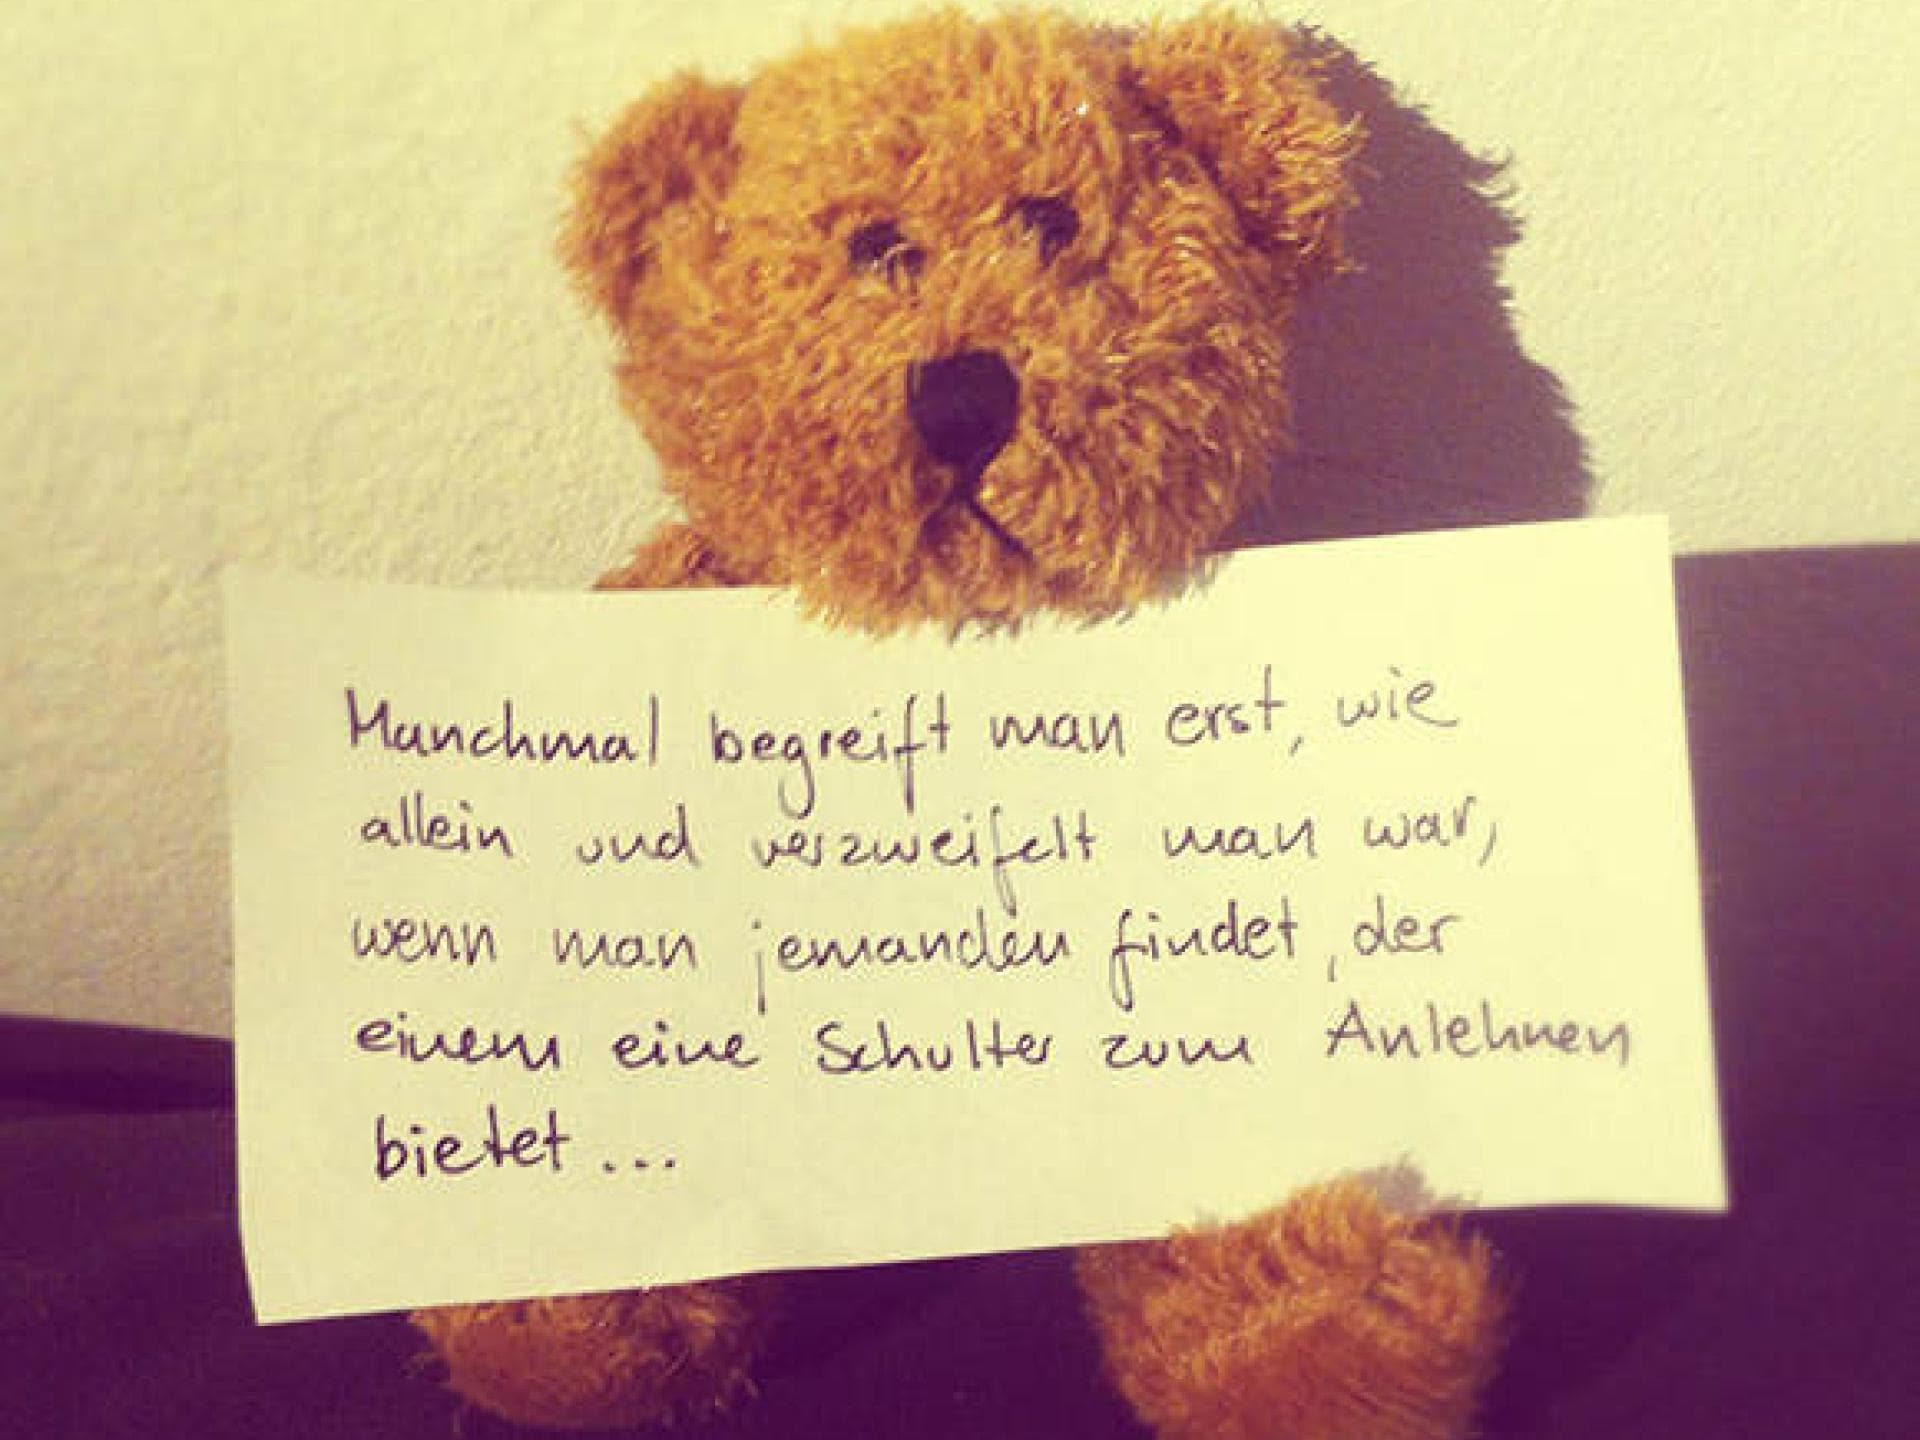 Manchmal begreift man erst, wie
allein und verzweifelt man war,
wenn man jemanden findet, der
einem eine Schulter zum Anlehnen
bietet...